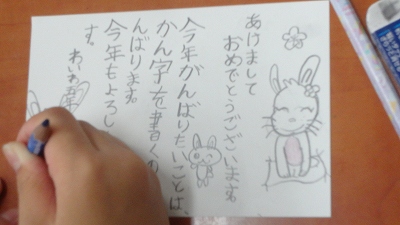 あけまして
おめでとうございます。
今年がんばりたいことは、
かん字を書くの
んばります。
今年もよろし
す。